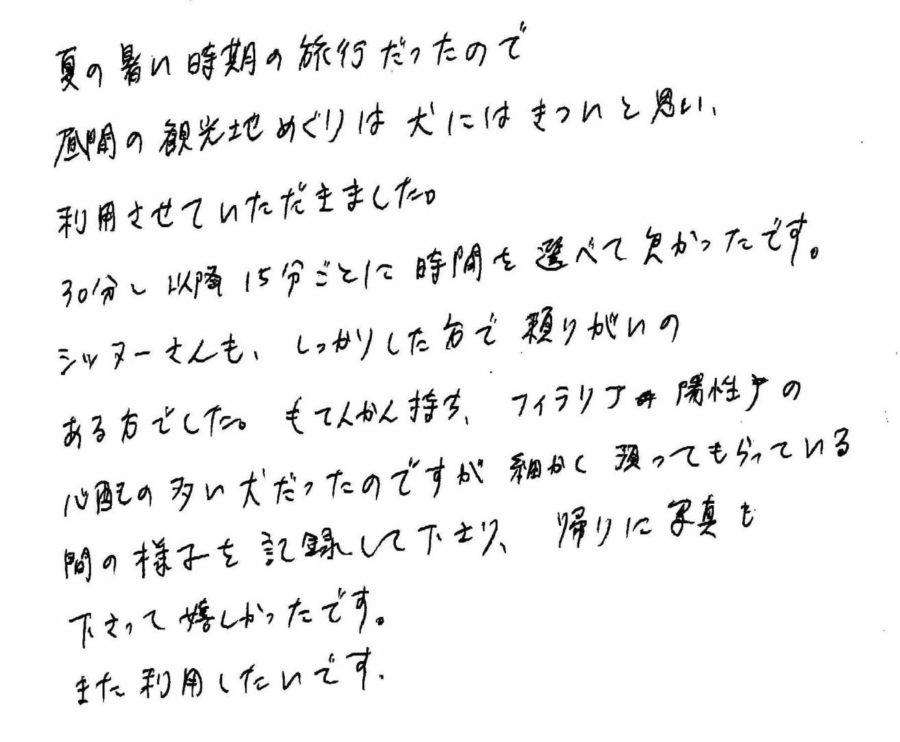 夏の暑い時期の旅行だったので
昼間の観光地めぐりは犬にはきついと思い、
利用させていただきました。
30分〜以降15分ごとに時間を選べて良かったです。
シッターさんも、しっかりした方で頼りがいの
ある方でした。もてんかん持ち、フィラリア陽性の
心配の多い犬だったのですが細かく預ってもらっている
間の様子を記録して下さり、帰りに写真も
下さって嬉しかったです。
また利用したいです.